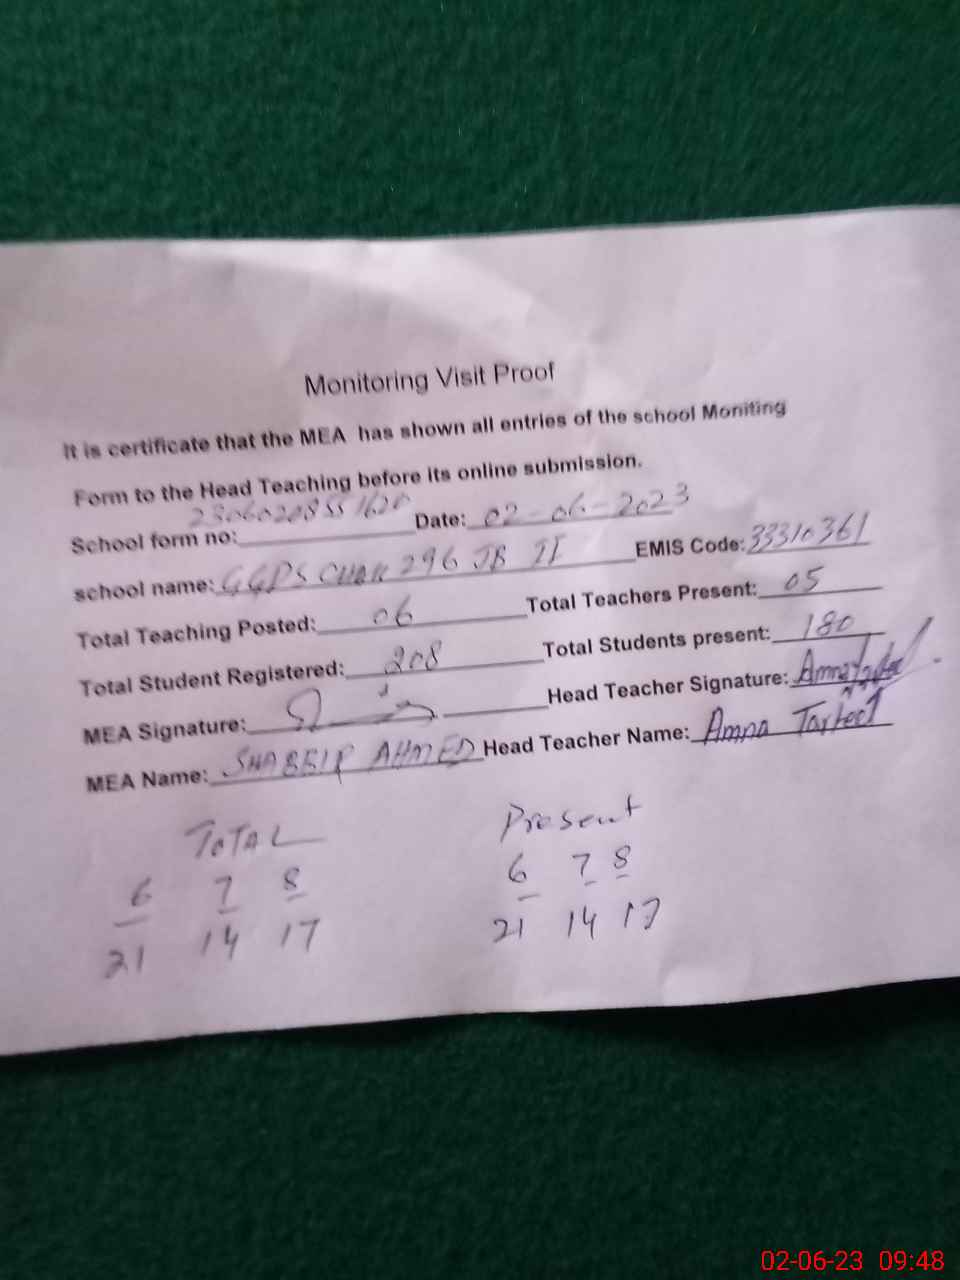 Monitoring Visit Proof
It is certificate that the MEA has shown all entries of the school Moniting
Form to the Head Teaching before its online submission.
School form no: 23060208551620 Date: 02-06-2023
school name: GGPS CHAK 296 JB II EMIS Code: 33310361
Total Teaching Posted: 06 Total Teachers Present: 05
Total Student Registered: 208 Total Students present: 180
MEA Signature: Head Teacher Signature:
MEA Name: SHABBIR AHMED Head Teacher Name: Amna
TOTAL Present
6 7 8 6 7 8
21 14 17 21 14 17
02-06-23 09:48